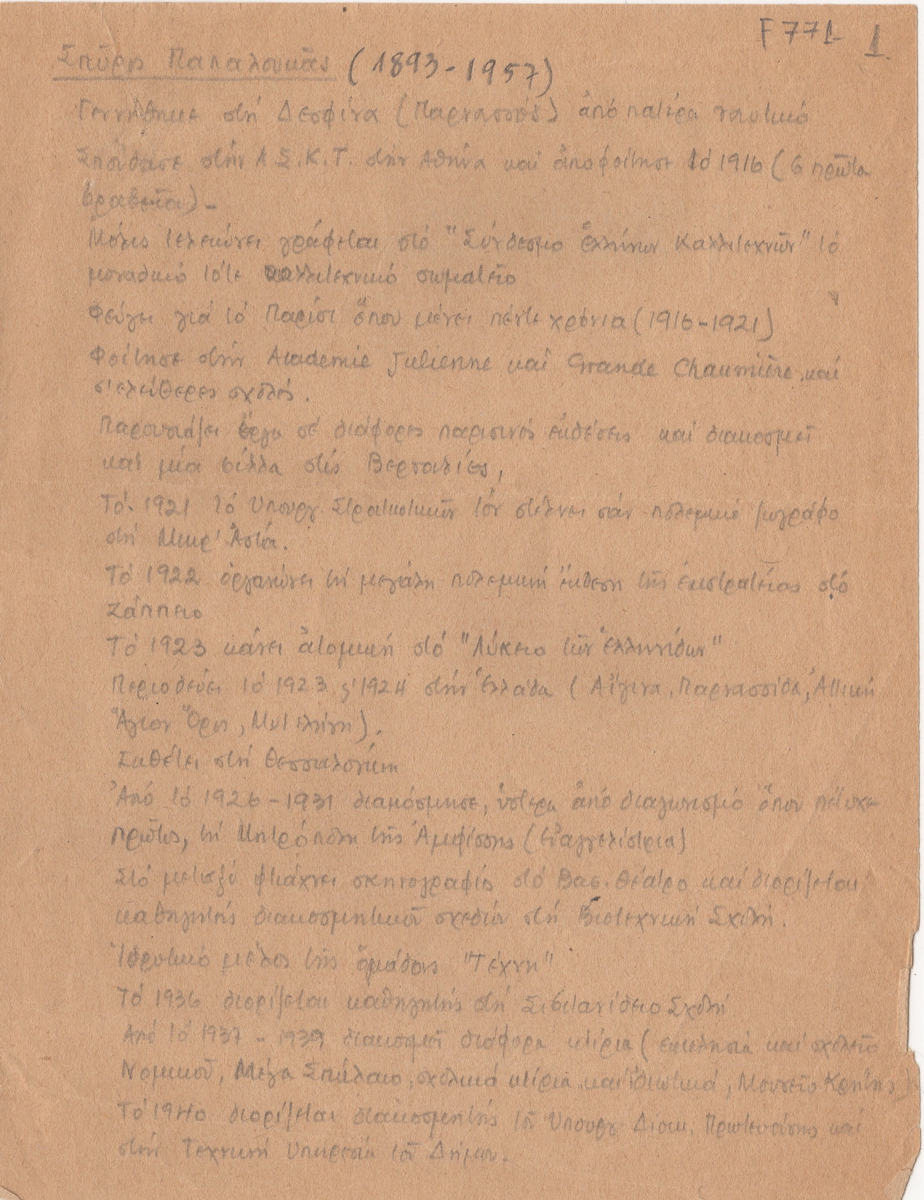 F 771 1
Σπύρος Παπαλουκᾶς (1893-1957)
Γεννήθηκε στή Δεσφίνα (Παρνασσός) ἀπό πατέρα ναυτικό
Σπούδασε στήν Α.Σ.Κ.Τ. στήν Ἀθήνα καί ἀποφοίτησε τό 1916 (6 πρῶτα
βραβεῖα) -
Μόλις τελειώνει γράφεται στό "Σύνδεσμο ἑλλήνων Καλλιτεχνῶν" τό
μοναδικό τότε καλλιτεχνικό σωματεῖο
Φεύγει γιά τό Παρίσι ὅπου μένει πέντε χρόνια (1916-1921)
Φοίτησε στήν Academie Julienne καί Grande Chaumière καί
σ'ελεύθερες σχολές.
Παρουσιάζει ἔργα σέ διάφορες παρισινές ἐκθέσεις καί διακοσμεῖ
καί μία βίλλα στίς Βερσαλίες,
Τό 1921 τό Ὑπουργ. Στρατιωτικῶν τόν στέλνει σάν πολεμικό ζωγράφο
στή Μικρ' Ἀσία.
Τό 1922 ὀργανώνει τή μεγάλη πολεμική ἔκθεση τῆς ἐκστρατείας στό
Ζάππειο
Τό 1923 κάνει ἀτομική στό "Λύκειο τῶν ἑλληνίδων"
Περιοδεύει τό 1923 ϛ' 1924 στήν Ἑλλάδα (Αἴγινα, Παρνασσίδα, Ἀττική
Ἅγιον Ὄρος, Μυτιλήνη).
Ἐκθέτει στή Θεσσαλονίκη
Ἀπό τό 1926-1931 διακόσμησε, ὕστερα ἀπό διαγωνισμό ὅπου πέτυχε
πρῶτος, τή Μητρόπολη τῆς Ἀμφίσσης (Εὐαγγελίστρια)
Στό μεταξύ φτιάχνει σκηνογραφίες στό Βασ. Θέατρο καί διορίζεται
καθηγητής διακοσμητικῶν σχεδίων στή Βιοτεχνική Σχολή.
Ἱδρυτικό μέλος τῆς ὁμάδος "Τέχνη"
Τό 1936 διορίζεται καθηγητής στή Σιβιτανίδειο Σχολή
Ἀπό τό 1937 - 1939 διακοσμεῖ διάφορα κτίρια (ἐκκλησιά καί σχολεῖο
Νομικοῦ, Μέγα Σπήλαιο, σχολικά κτίρια καί ἰδιωτικά, Μουσεῖο Κρήτης
Τό 1940 διορίζεται διακοσμητής τοῦ Ὑπουργ. Διοικ. Πρωτευούσης καί
στήν Τεχνική Ὑπηρεσία τοῦ Δήμου.